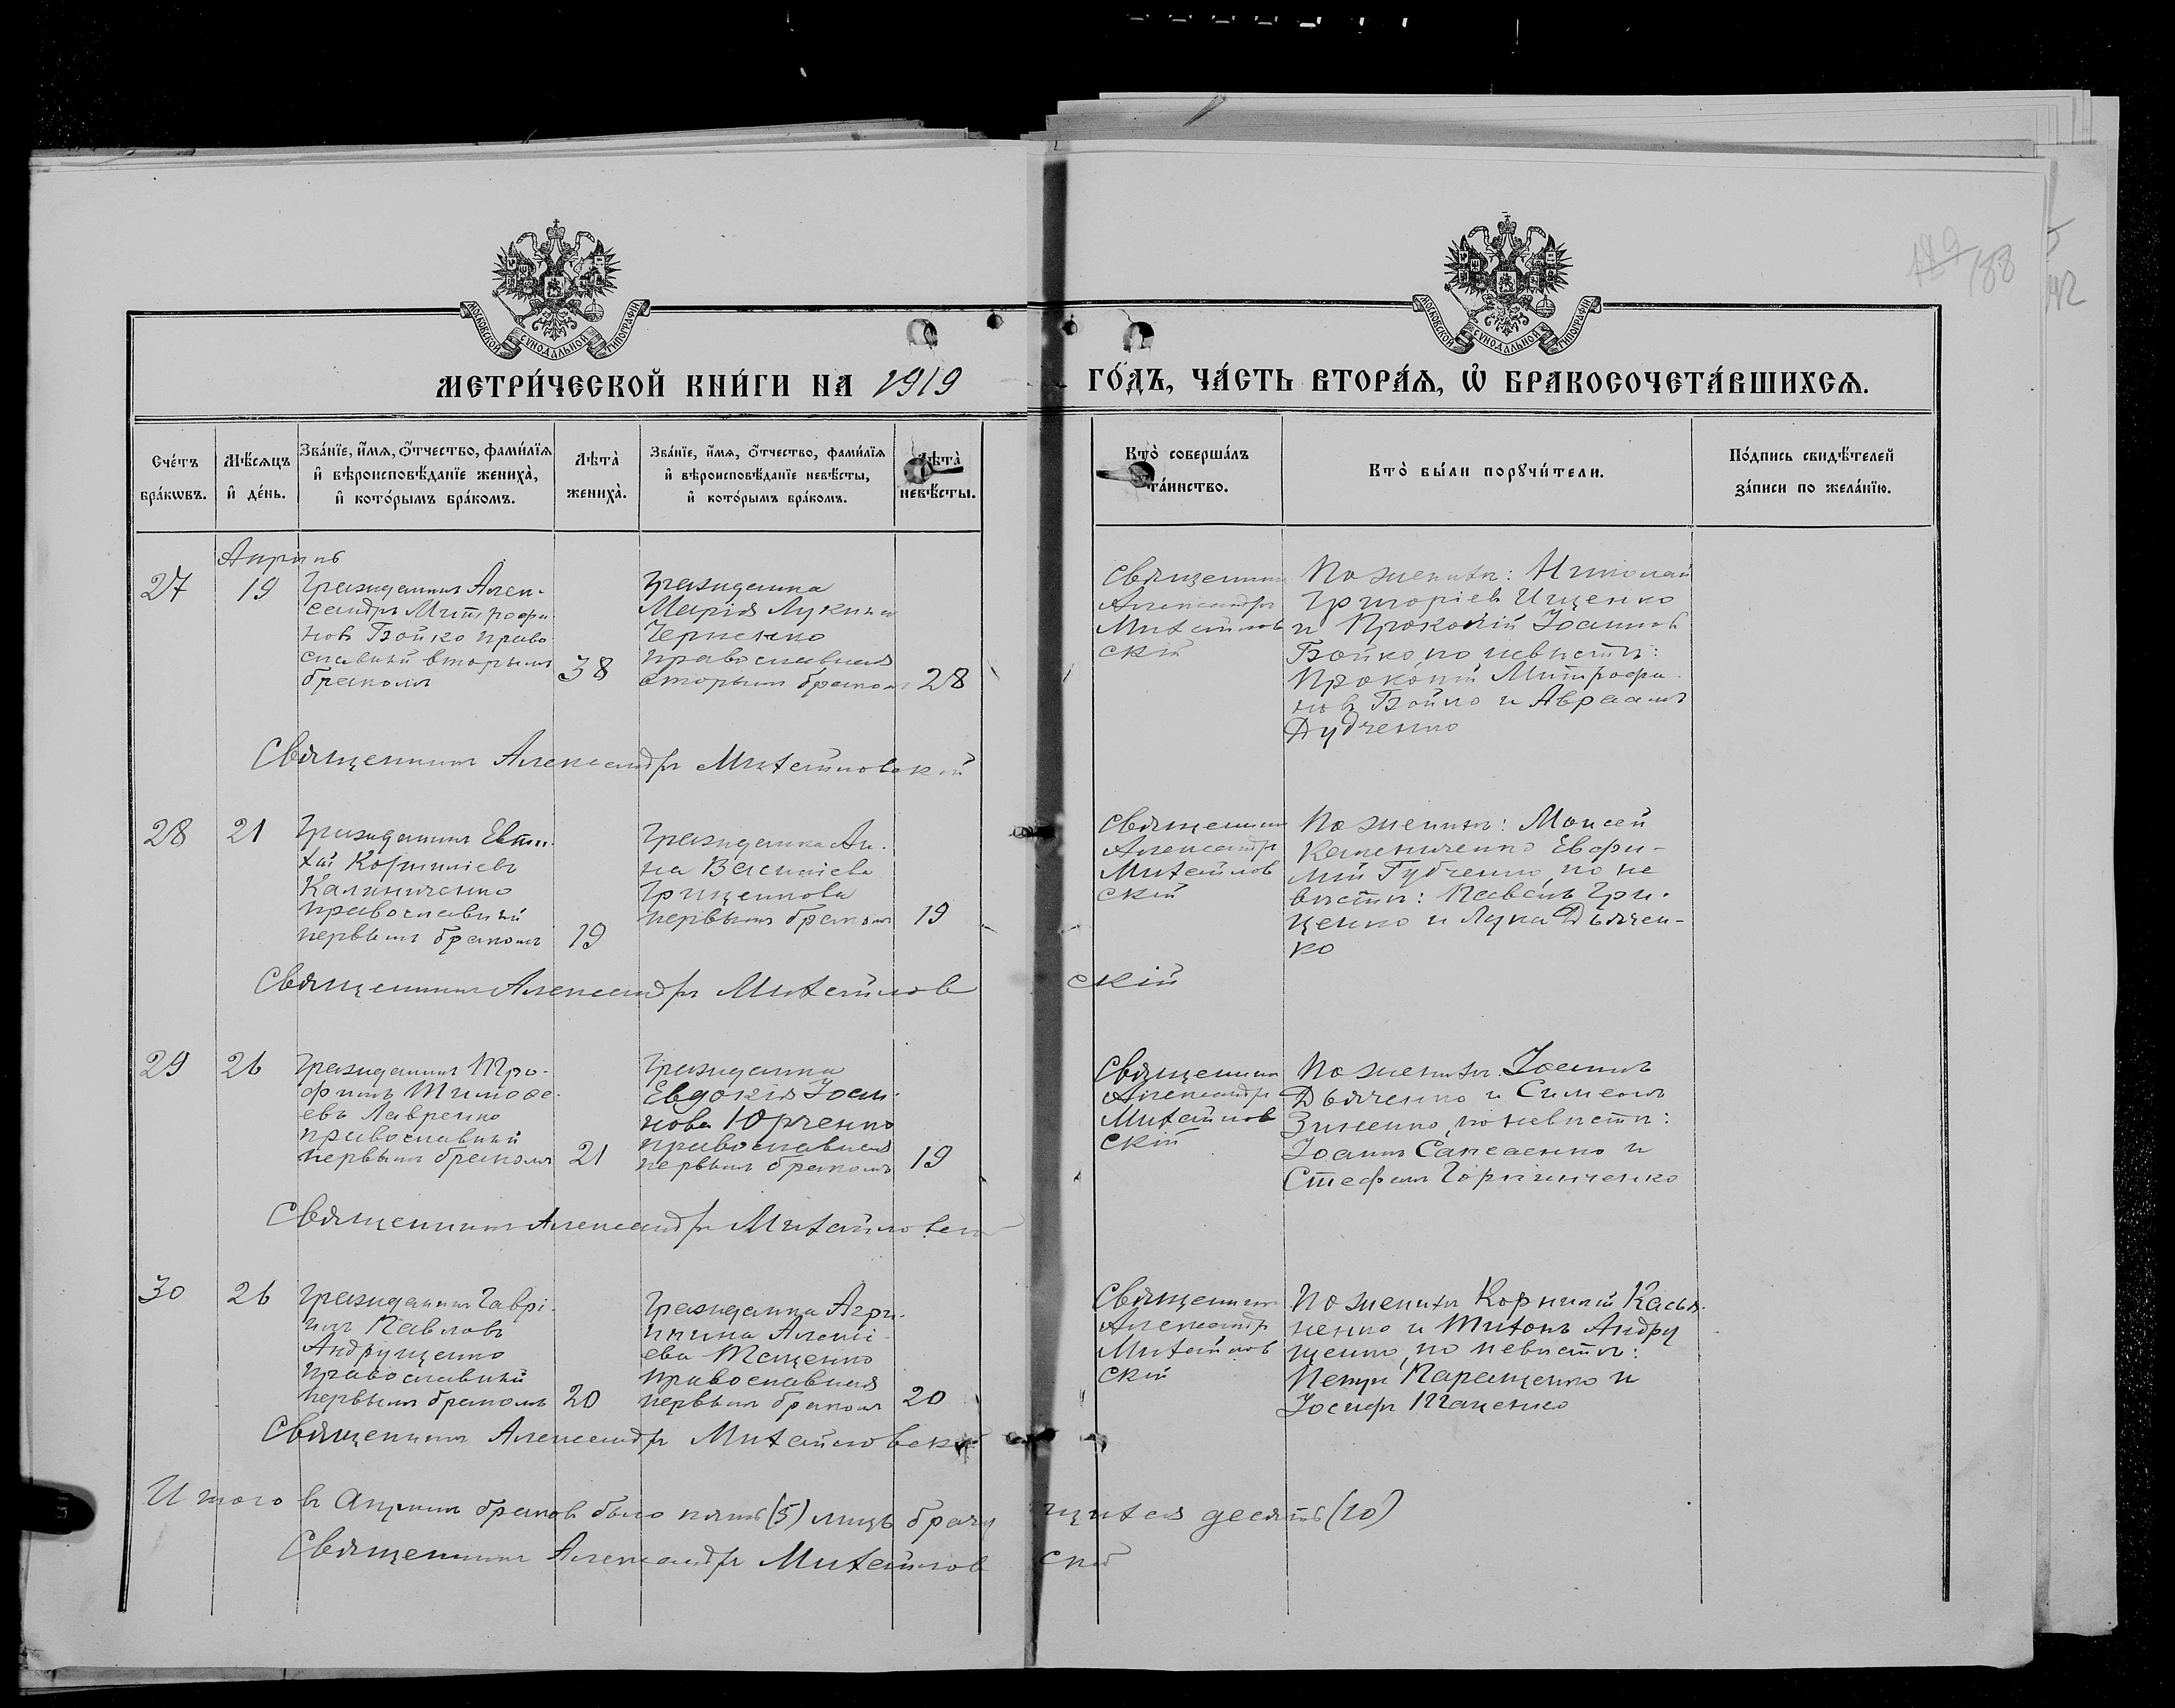 189 188
42
МОСКОВСКОЙ СѴНОДАЛЬНОЙ ТИПОГРАФІИ
МОСКОВСКОЙ СѴНОДАЛЬНОЙ ТИПОГРАФІИ
МЕТРИ́ЧЕСКОЙ КНИ́ГИ НА 1919 ГО́ДЪ, ЧА́СТЬ ВТОРА́Ѧ, Ѽ БРАКОСОЧЕТА́ВШИХСѦ.
Сче́тъ бра́кѡвъ.
Мѣ́сѧцъ и҆ де́нь.
Зва́нїе, и҆́мѧ, ѻ҆́тчество, фами́лїѧ и҆ вѣроисповѣ́данїе жениха̀, и҆ кото́рымъ бра́комъ.
Лѣта̀ жениха̀.
Зва́нїе, и҆́мѧ, ѻ҆́тчество, фами́лїѧ и҆ вѣроисповѣ́данїе невѣ́сты, и҆ кото́рымъ бра́комъ.
Лѣта̀ невѣ́сты.
Кто̀ соверша́лъ та́инство.
Кто̀ бы́ли порꙋчи́тели.
По́дпись свидѣ́телей за́писи по жела́нїю.
Апрѣль
27
19
Гражданинъ Алек-
сандръ Митрофа-
новъ Бойко право
славный вторымъ
бракомъ
38
Гражданка
Марія Лукина
Черненко
православная
вторымъ бракомъ
28
Священникъ
Александръ
Михайлов
скій
По женихѣ: Николай
Григоріев Ищенко
и Прокопій Іоаннов
Бойко, по невѣстѣ:
Прокопій Митрофа-
новъ Бойко и Авраамъ
Дудченко
Священникъ Александръ Михайловскій
28
21
Гражданинъ Евти-
хій Корниліевъ
Калиниченко
православный
первымъ бракомъ
19
Гражданка Ан-
на Василіева
Гриценкова
первымъ бракомъ
19
Священникъ
Александръ
Михайлов
скій
По женихѣ: Моисей
Калениченко Евфи-
мій Губченко, по не
вѣстѣ: Павелъ Гри-
ценко и Лука Дьячен-
ко
Священникъ Александръ Михайлов скій
29
26
Гражданинъ Тро-
фимъ Тимофе-
евъ Лавренко
православный
первымъ бракомъ
21
Гражданка
Евдокія Іоан-
нова Юрченко
православная
первымъ бракомъ
19
Священникъ
Александръ
Михайлов
скій
По женихѣ: Іоаннъ
Дьяченко и Симеонъ
Зиненко, по невѣстѣ:
Іоаннъ Саксаенко и
Стефанъ
Священникъ Александръ Михайловскій
30
26
Гражданинъ Гаврі-
илъ Павловъ
Андрущенко
православный
первымъ бракомъ
20
Гражданка Агри-
пина Алексі-
ева Тащенко
православная
первымъ бракомъ
20
Священникъ
Александръ
Михайлов
скій
По женихѣ Корнилій Касья-
ненко и Тихонъ Андру
щенко, по невѣстѣ:
Петръ Паращенко и
Іосифъ Таценко
Священникъ Александръ Михайловскій
Итого въ Апрѣлѣ браковъ было пять (5) лицъ брачу щихся десять (10)
Священникъ Александръ Михайлов скій